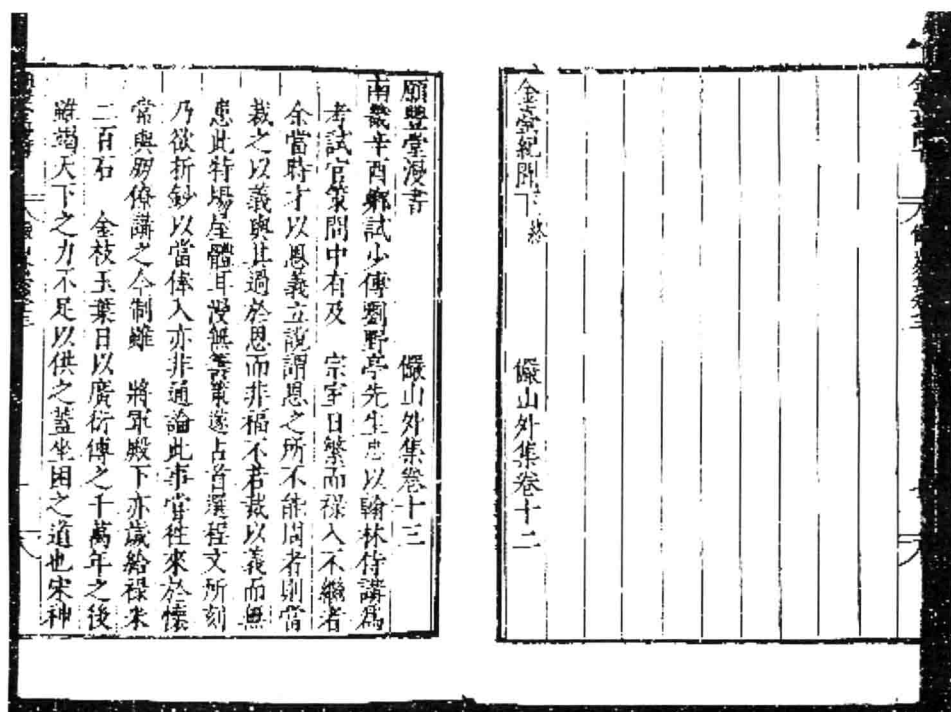 金臺紀聞下 終 儼山外集卷十二
願豐堂漫書 儼山外集卷十三
南畿辛酉鄉試少傅劉野亭先生忠以翰林侍講爲
考試官策問中有及 宗室日繁而祿入不繼者
余當時才以恩義立說謂恩之所不能周者則當
裁之以義與其過於恩而非福不若裁以義而無
患此特場屋體耳漫無籌策遂占首選程文所刻
乃欲折鈔以當俸入亦非通論此事嘗徃來於懷
常與朋僚講之今制雖 將軍殿下亦歲給祿米
二百石 金枝玉葉日以廣衍傳之千萬年之後
雖竭天下之力不足以供之蓋坐困之道也宋神